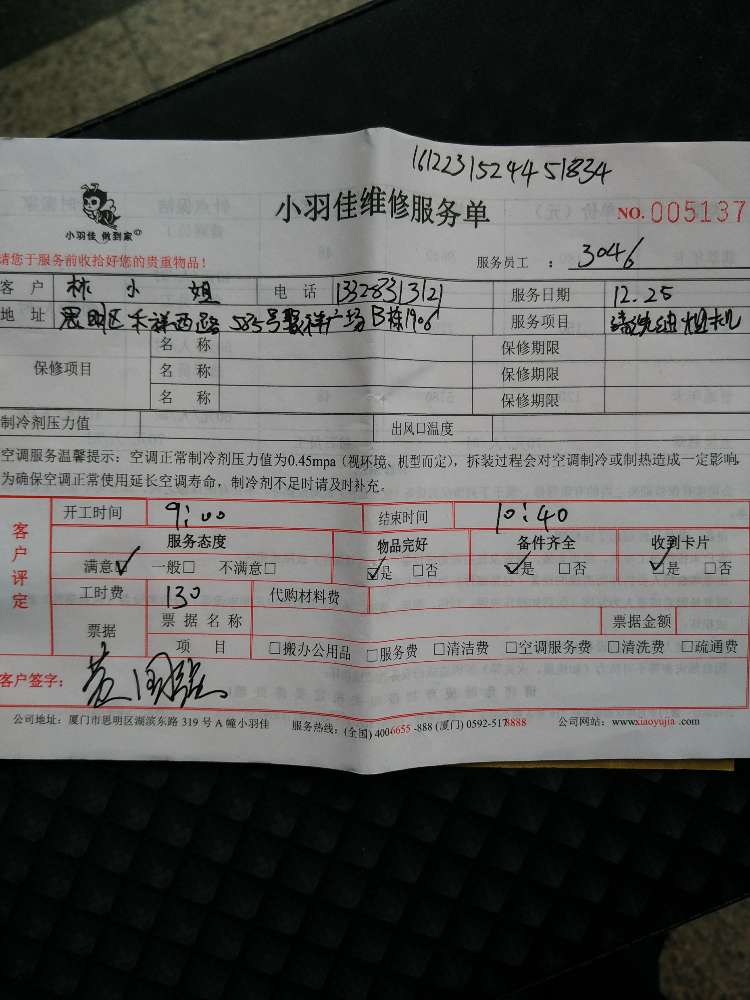 16122315244451834
小羽佳 做到家
小羽佳维修服务单
NO. 005137
请您于服务前收拾好您的贵重物品!
服务员工 : 3046
客 户 林小姐 电 话 13328313121 服务日期 12.25
地 址 思明区禾祥西路585号聚祥广场B栋1906 服务项目 清洗油烟机
保修项目
名 称 保修期限
名 称 保修期限
名 称 保修期限
制冷剂压力值 出风口温度
空调服务温馨提示:空调正常制冷剂压力值为0.45mpa(视环境、机型而定),拆装过程会对空调制冷或制热造成一定影响,
为确保空调正常使用延长空调寿命,制冷剂不足时请及时补充。
客户评定
开工时间 9:00 结束时间 10:40
服务态度 物品完好 备件齐全 收到卡片
满意☑ 一般□ 不满意□ ☑是 □否 ☑是 □否 ☑是 □否
工时费 130 代购材料费
票据 票 据 名 称 票据金额
项 目 □搬办公用品 □服务费 □清洁费 □空调服务费 □清洗费 □疏通费
客户签字:
公司地址:厦门市思明区湖滨东路 319 号 A 幢小羽佳 服务热线:(全国) 4006655 -888 (厦门) 0592-5178888 公司网站:www.xiaoyujia .com